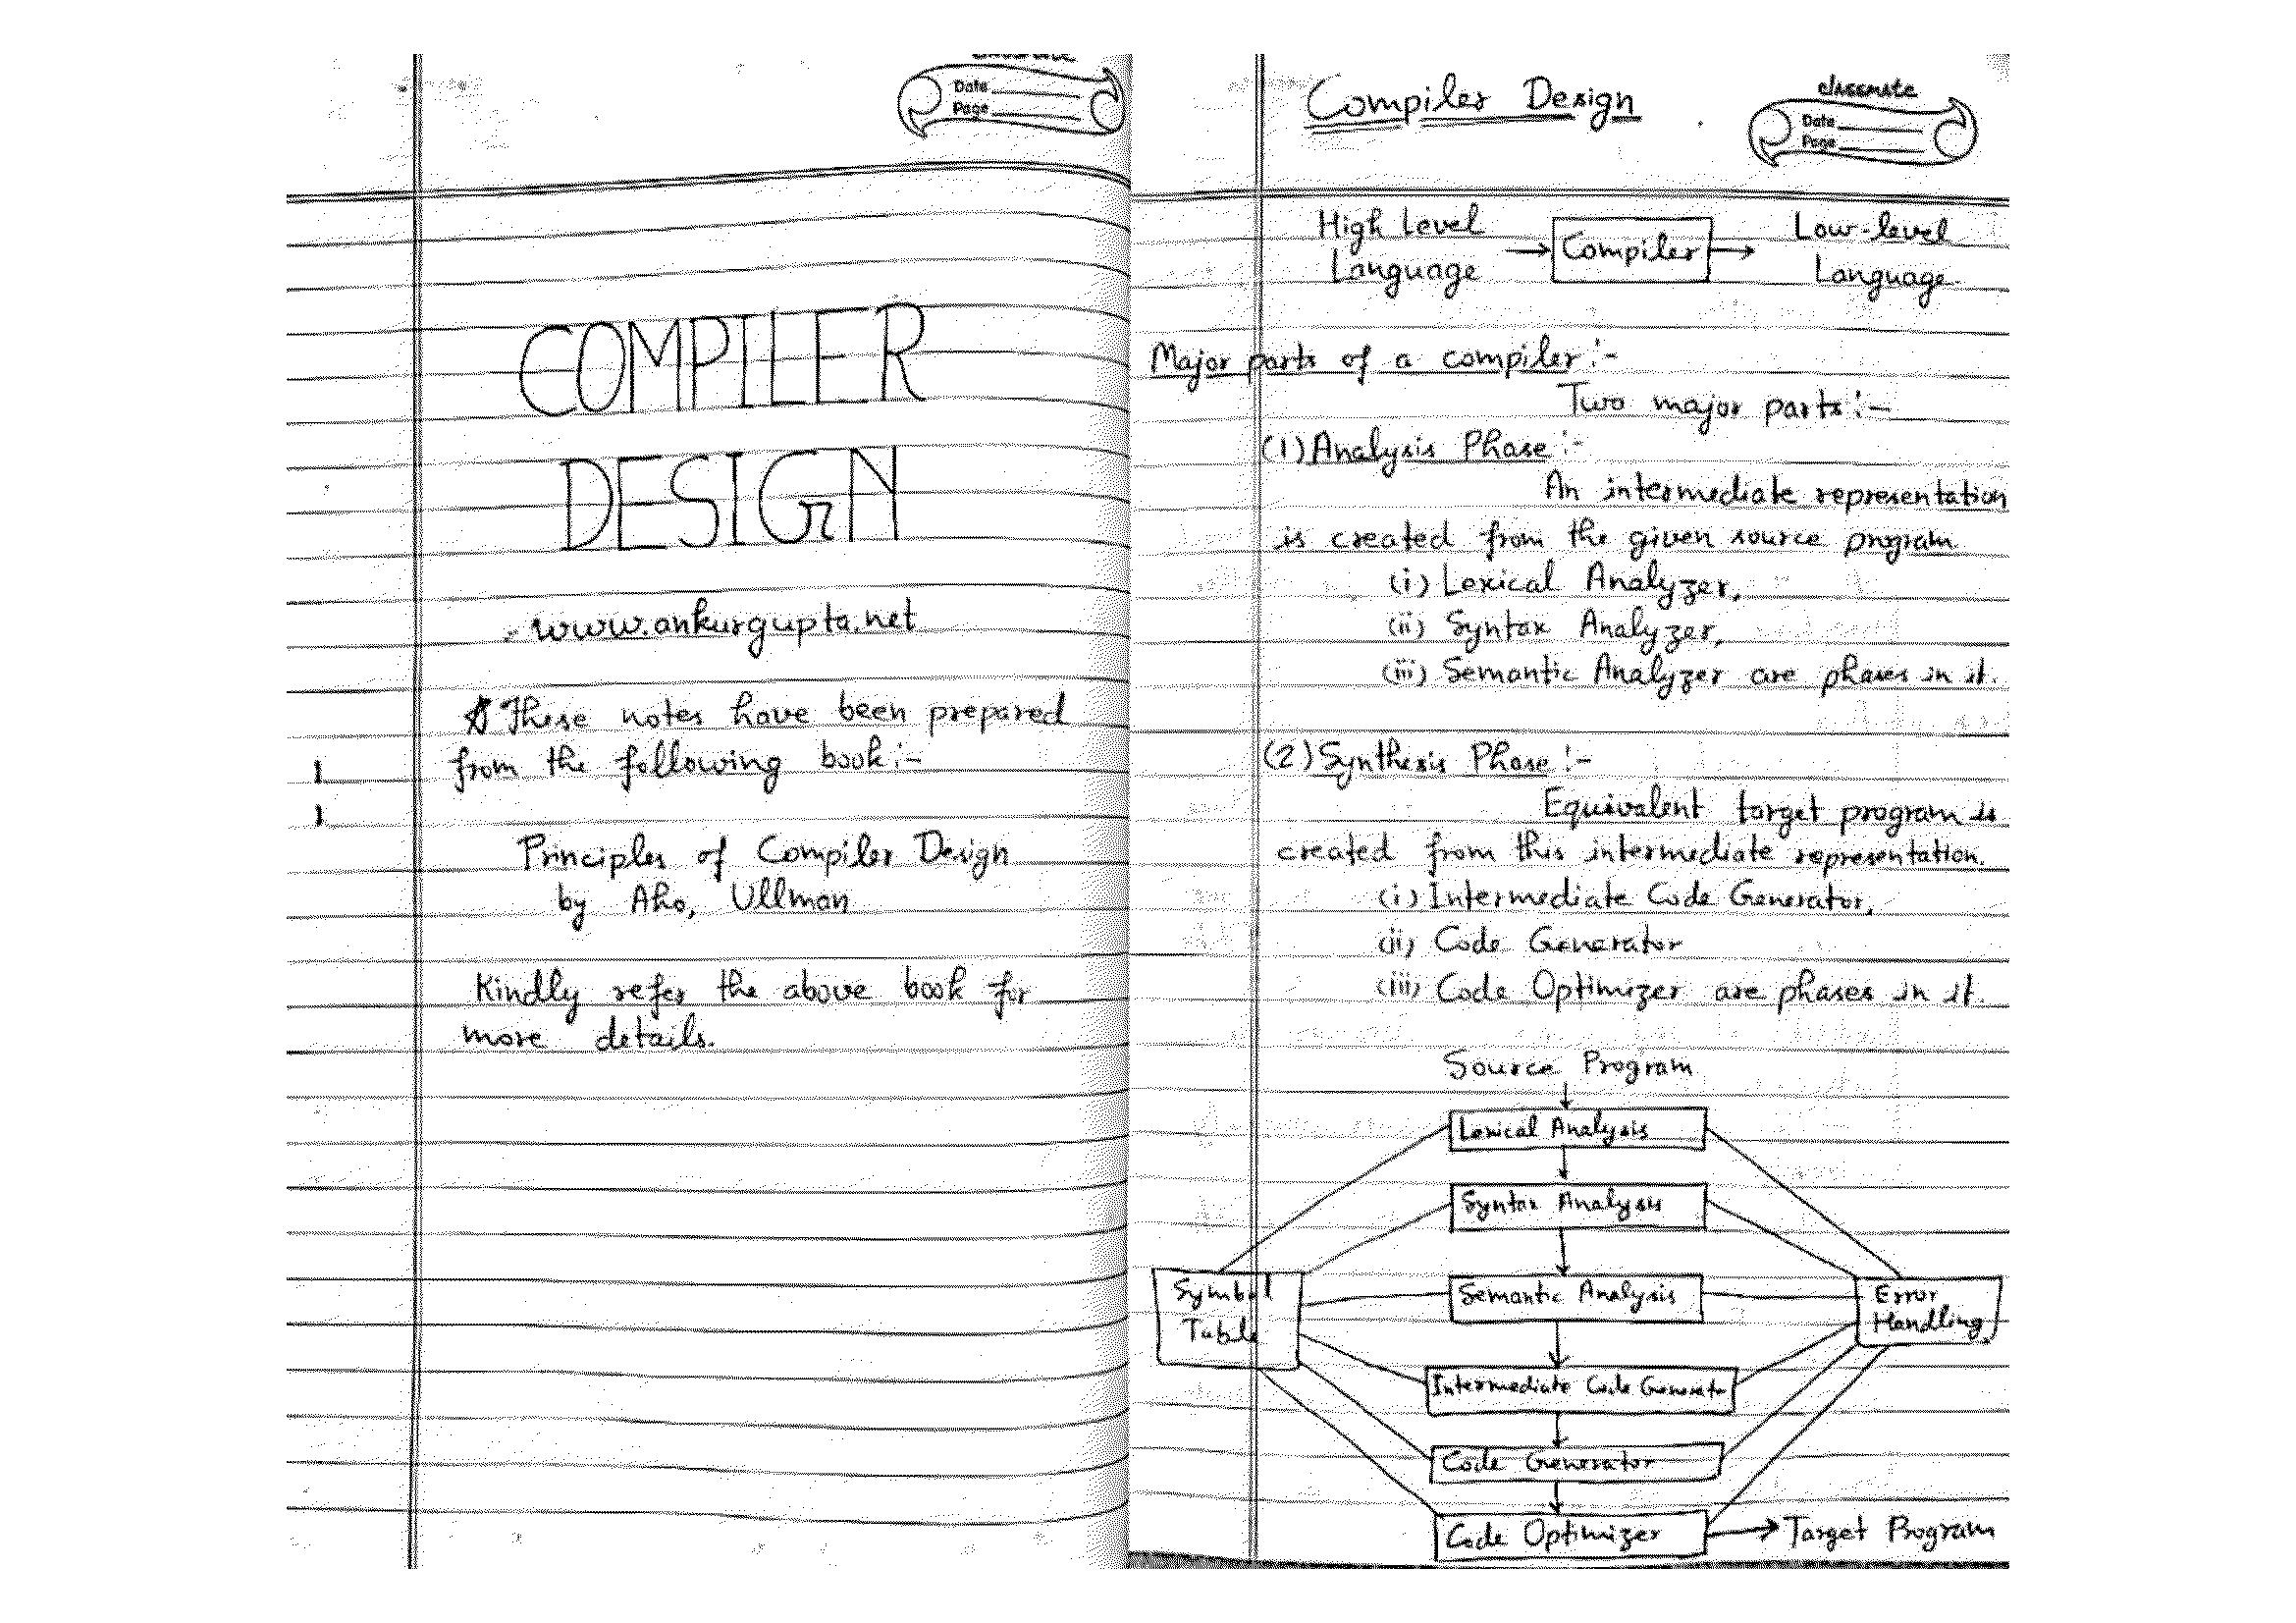 Date
Page
COMPILER
DESIGN
- www.ankurgupta.net
These notes have been prepared
from the following book:-
Principles of Compiler Design
by Aho, Ullman
Kindly refer the above book for
more details.
Compiler Design
classmate
Date
Page
High Level
Language
Compiler
Low-level
Language.
Major parts of a compiler:-
Two major parts:-
(1) Analysis Phase:-
An intermediate representation
is created from the given source program.
(i) Lexical Analyzer,
(ii) Syntax Analyzer,
(iii) Semantic Analyzer are phases in it.
(2) Synthesis Phase:-
Equivalent target program is
created from this intermediate representation.
(i) Intermediate Code Generator,
(ii) Code Generator
(iii) Code Optimizer are phases in it.
Source Program
Lexical Analysis
Syntax Analysis
Symbol
Table
Semantic Analysis
Error
Handling
Intermediate Code Generator
Code Generator
Code Optimizer
Target Program